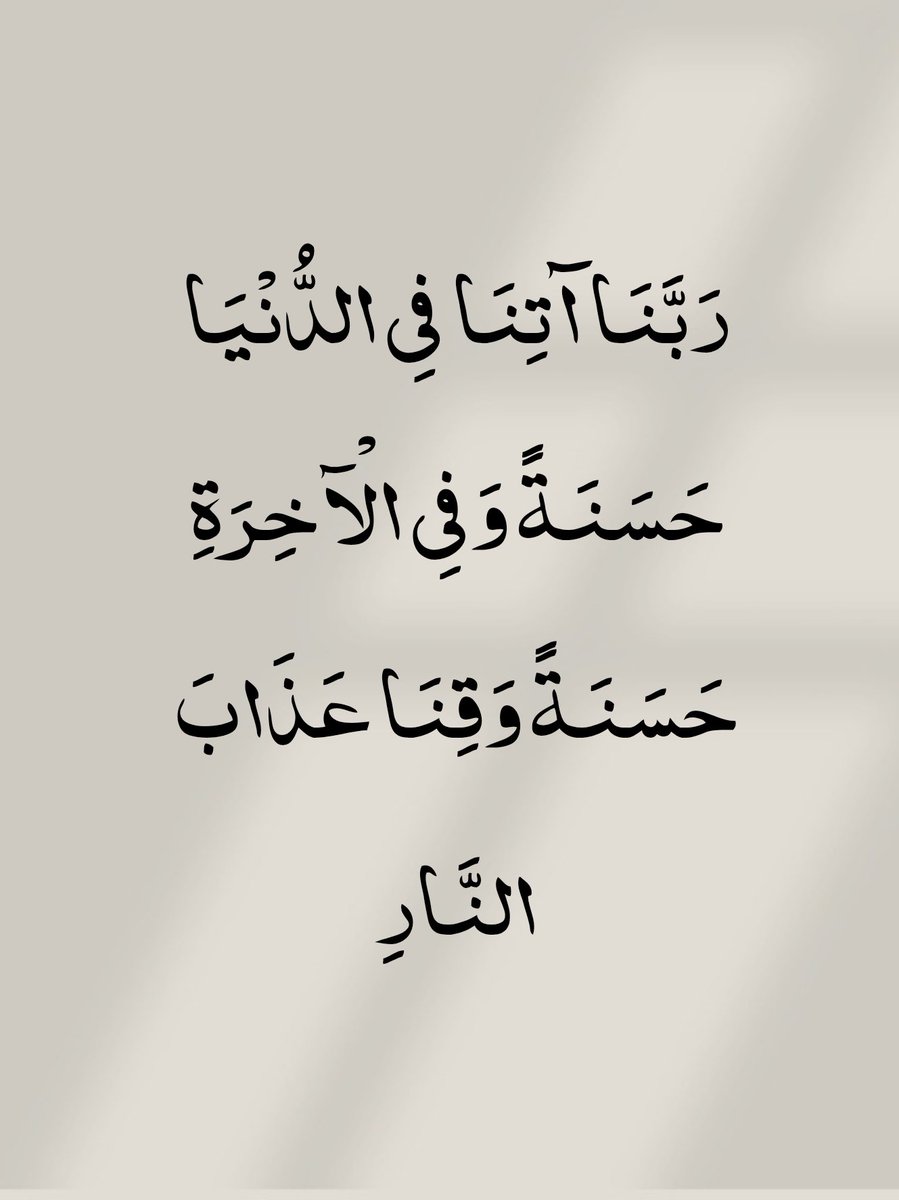 رَبَّنَا آتِنَا فِي الدُّنْيَا
حَسَنَةً وَفِي الْآخِرَةِ
حَسَنَةً وَقِنَا عَذَابَ
النَّارِ